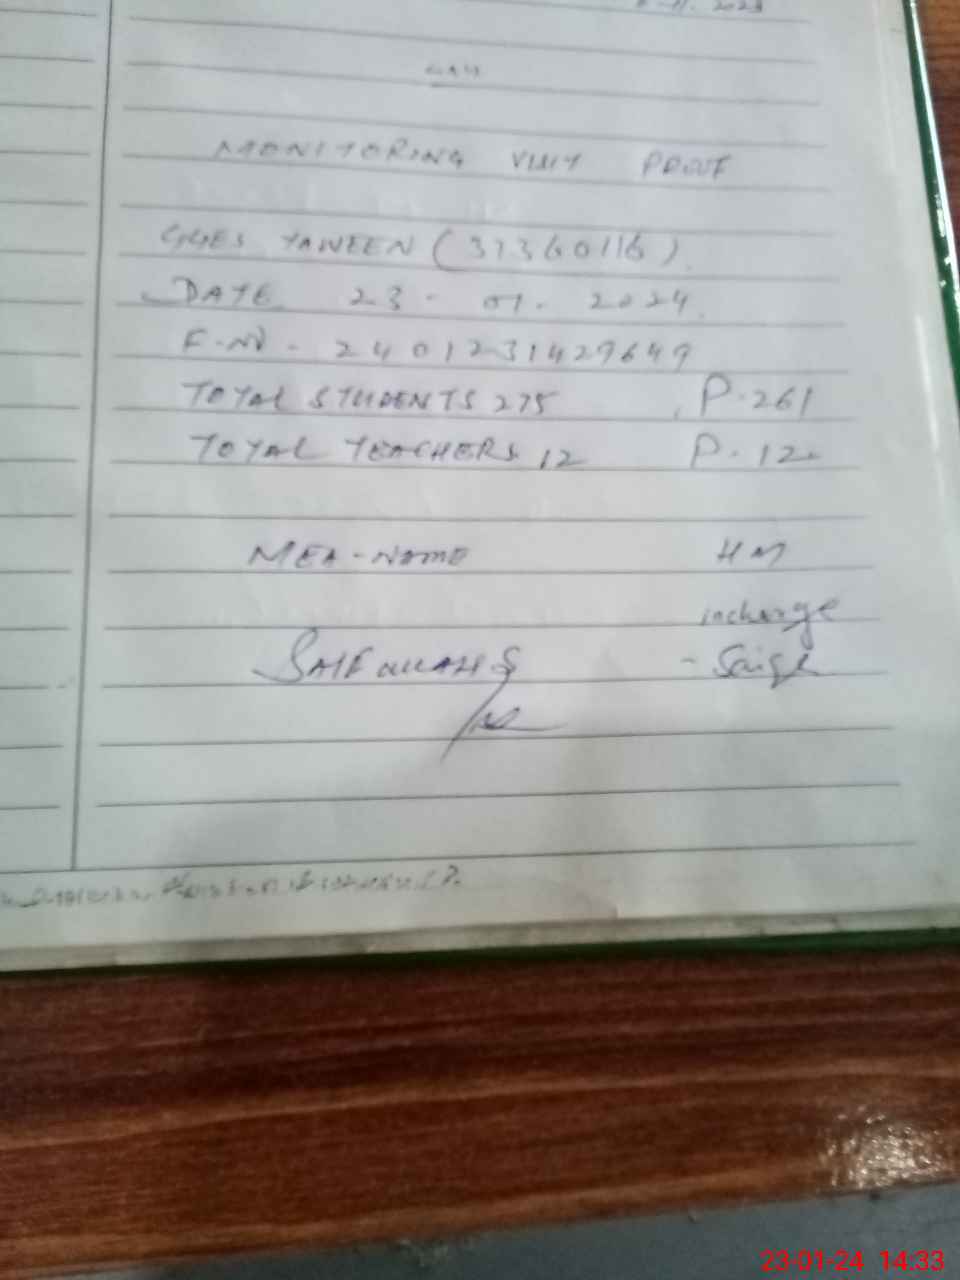 2023
MONITORING VISIT PROOF
GGES YAWEEN (37360116).
DATE 23-01.2024.
F.NO - 2401231429649
TOTAL STUDENTS 275 P.261
TOTAL TEACHERS 12 P.12
MEA-NAME HM
incharge
23-01-24 14:33